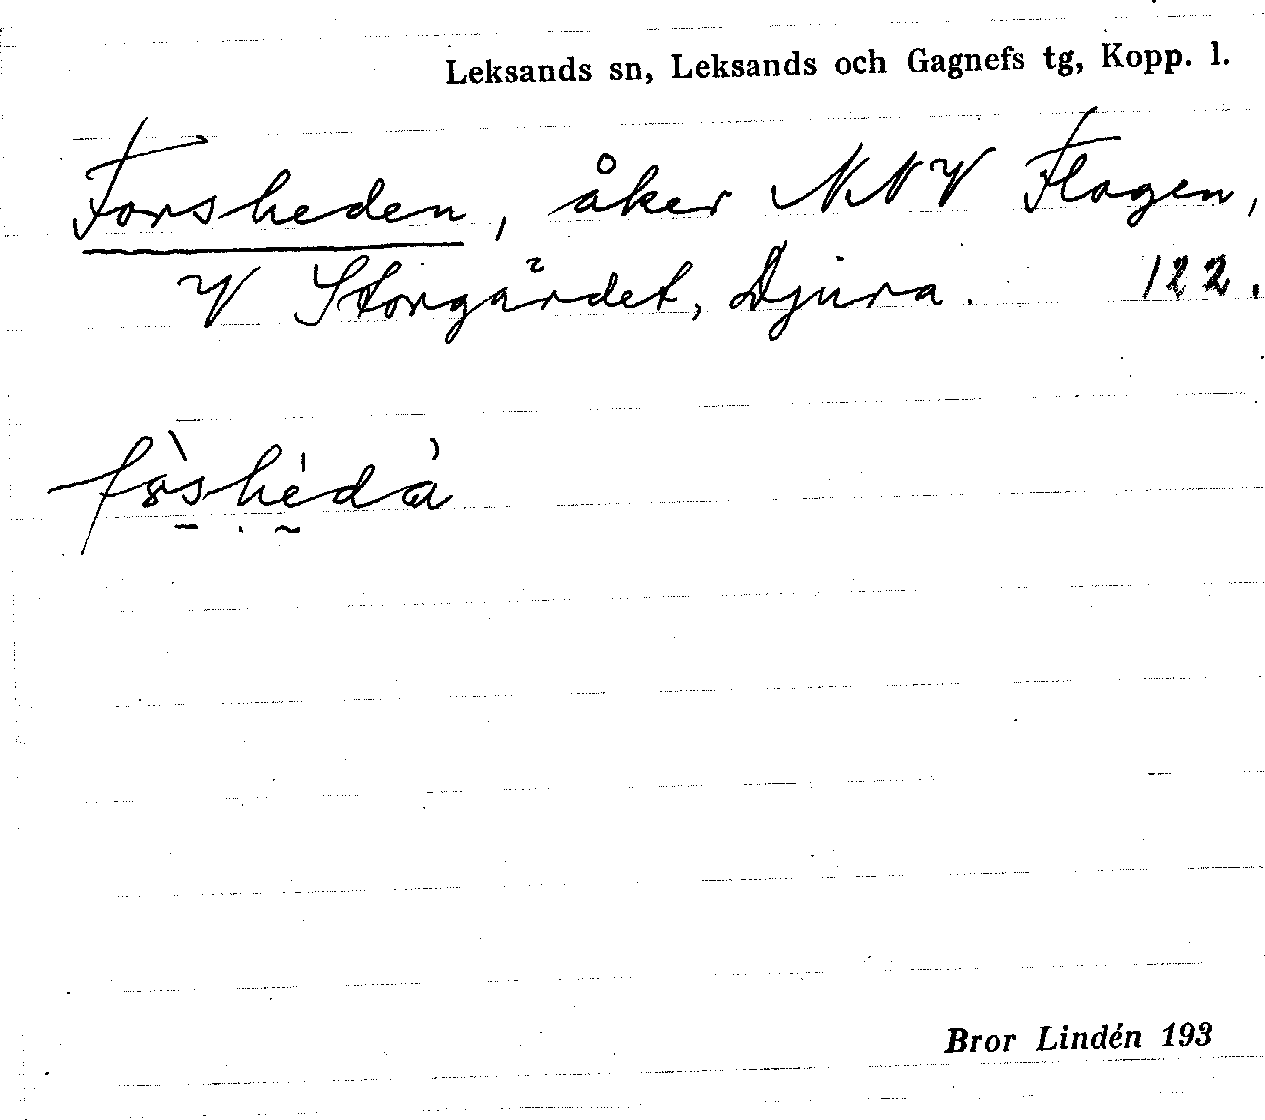 Leksands sn, Leksands och Gagnefs tg, Kopp. l.
Forsheden, åker NNV Flogen,
V Storgärdet, Djura. 122.
Bror Lindén 193